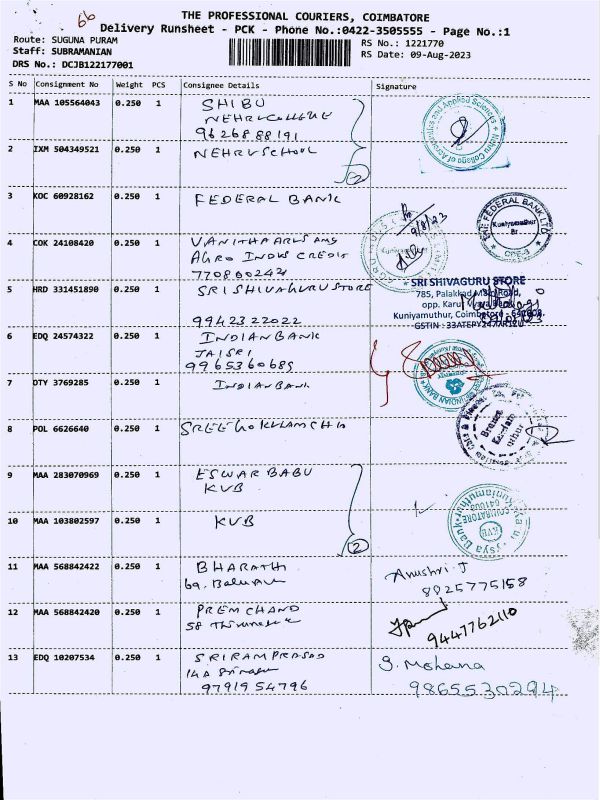 66
THE PROFESSIONAL COURIERS, COIMBATORE
Delivery Runsheet - PCK - Phone No.:0422-3505555 - Page No.:1
Route: SUGUNA PURAM
RS No.: 1221770
Staff: SUBRAMANIAN
RS Date: 09-Aug-2023
DRS No.: DCJB122177001
S No Consignment No Weight PCS Consignee Details Signature
1 MAA 105564043 0.250 1 SHIBU
NEHRU COLLEGE
9626888191
Nehru College of Aeronautics and Applied Sciences
2 IXM 504349521 0.250 1 NEHRU SCHOOL
2
3 KOC 60928162 0.250 1 FEDERAL BANK
THE FEDERAL BANK LTD
Kuniyamuthur
Br
9/8/23
4 COK 24108420 0.250 1
AGRO INDUS CREDIT
7708002421
5 HRD 331451890 0.250 1 SRI SHIVAGURU STORE
9942322022
SRI SHIVAGURU STORE
785, Palakkad Main Road,
Kuniyamuthur, Coimbatore
6 EDQ 24574322 0.250 1 INDIAN BANK
JAISRI
9965360689
INDIAN BANK
7 DTY 3769285 0.250 1 INDIAN BANK
8 POL 6626640 0.250 1 SREE GOKULAM CHIT
9 MAA 283070969 0.250 1 ESWAR BABU
KVB
10 MAA 103802597 0.250 1 KVB
2
KVB
11 MAA 568842422 0.250 1 BHARATH
69.
Anushri.J
8825775158
12 MAA 568842420 0.250 1 PREM CHAND
58
9447762110
13 EDQ 10207534 0.250 1 SRIRAM PRASAD
14A
9791954796
S. Mohana
9865530294